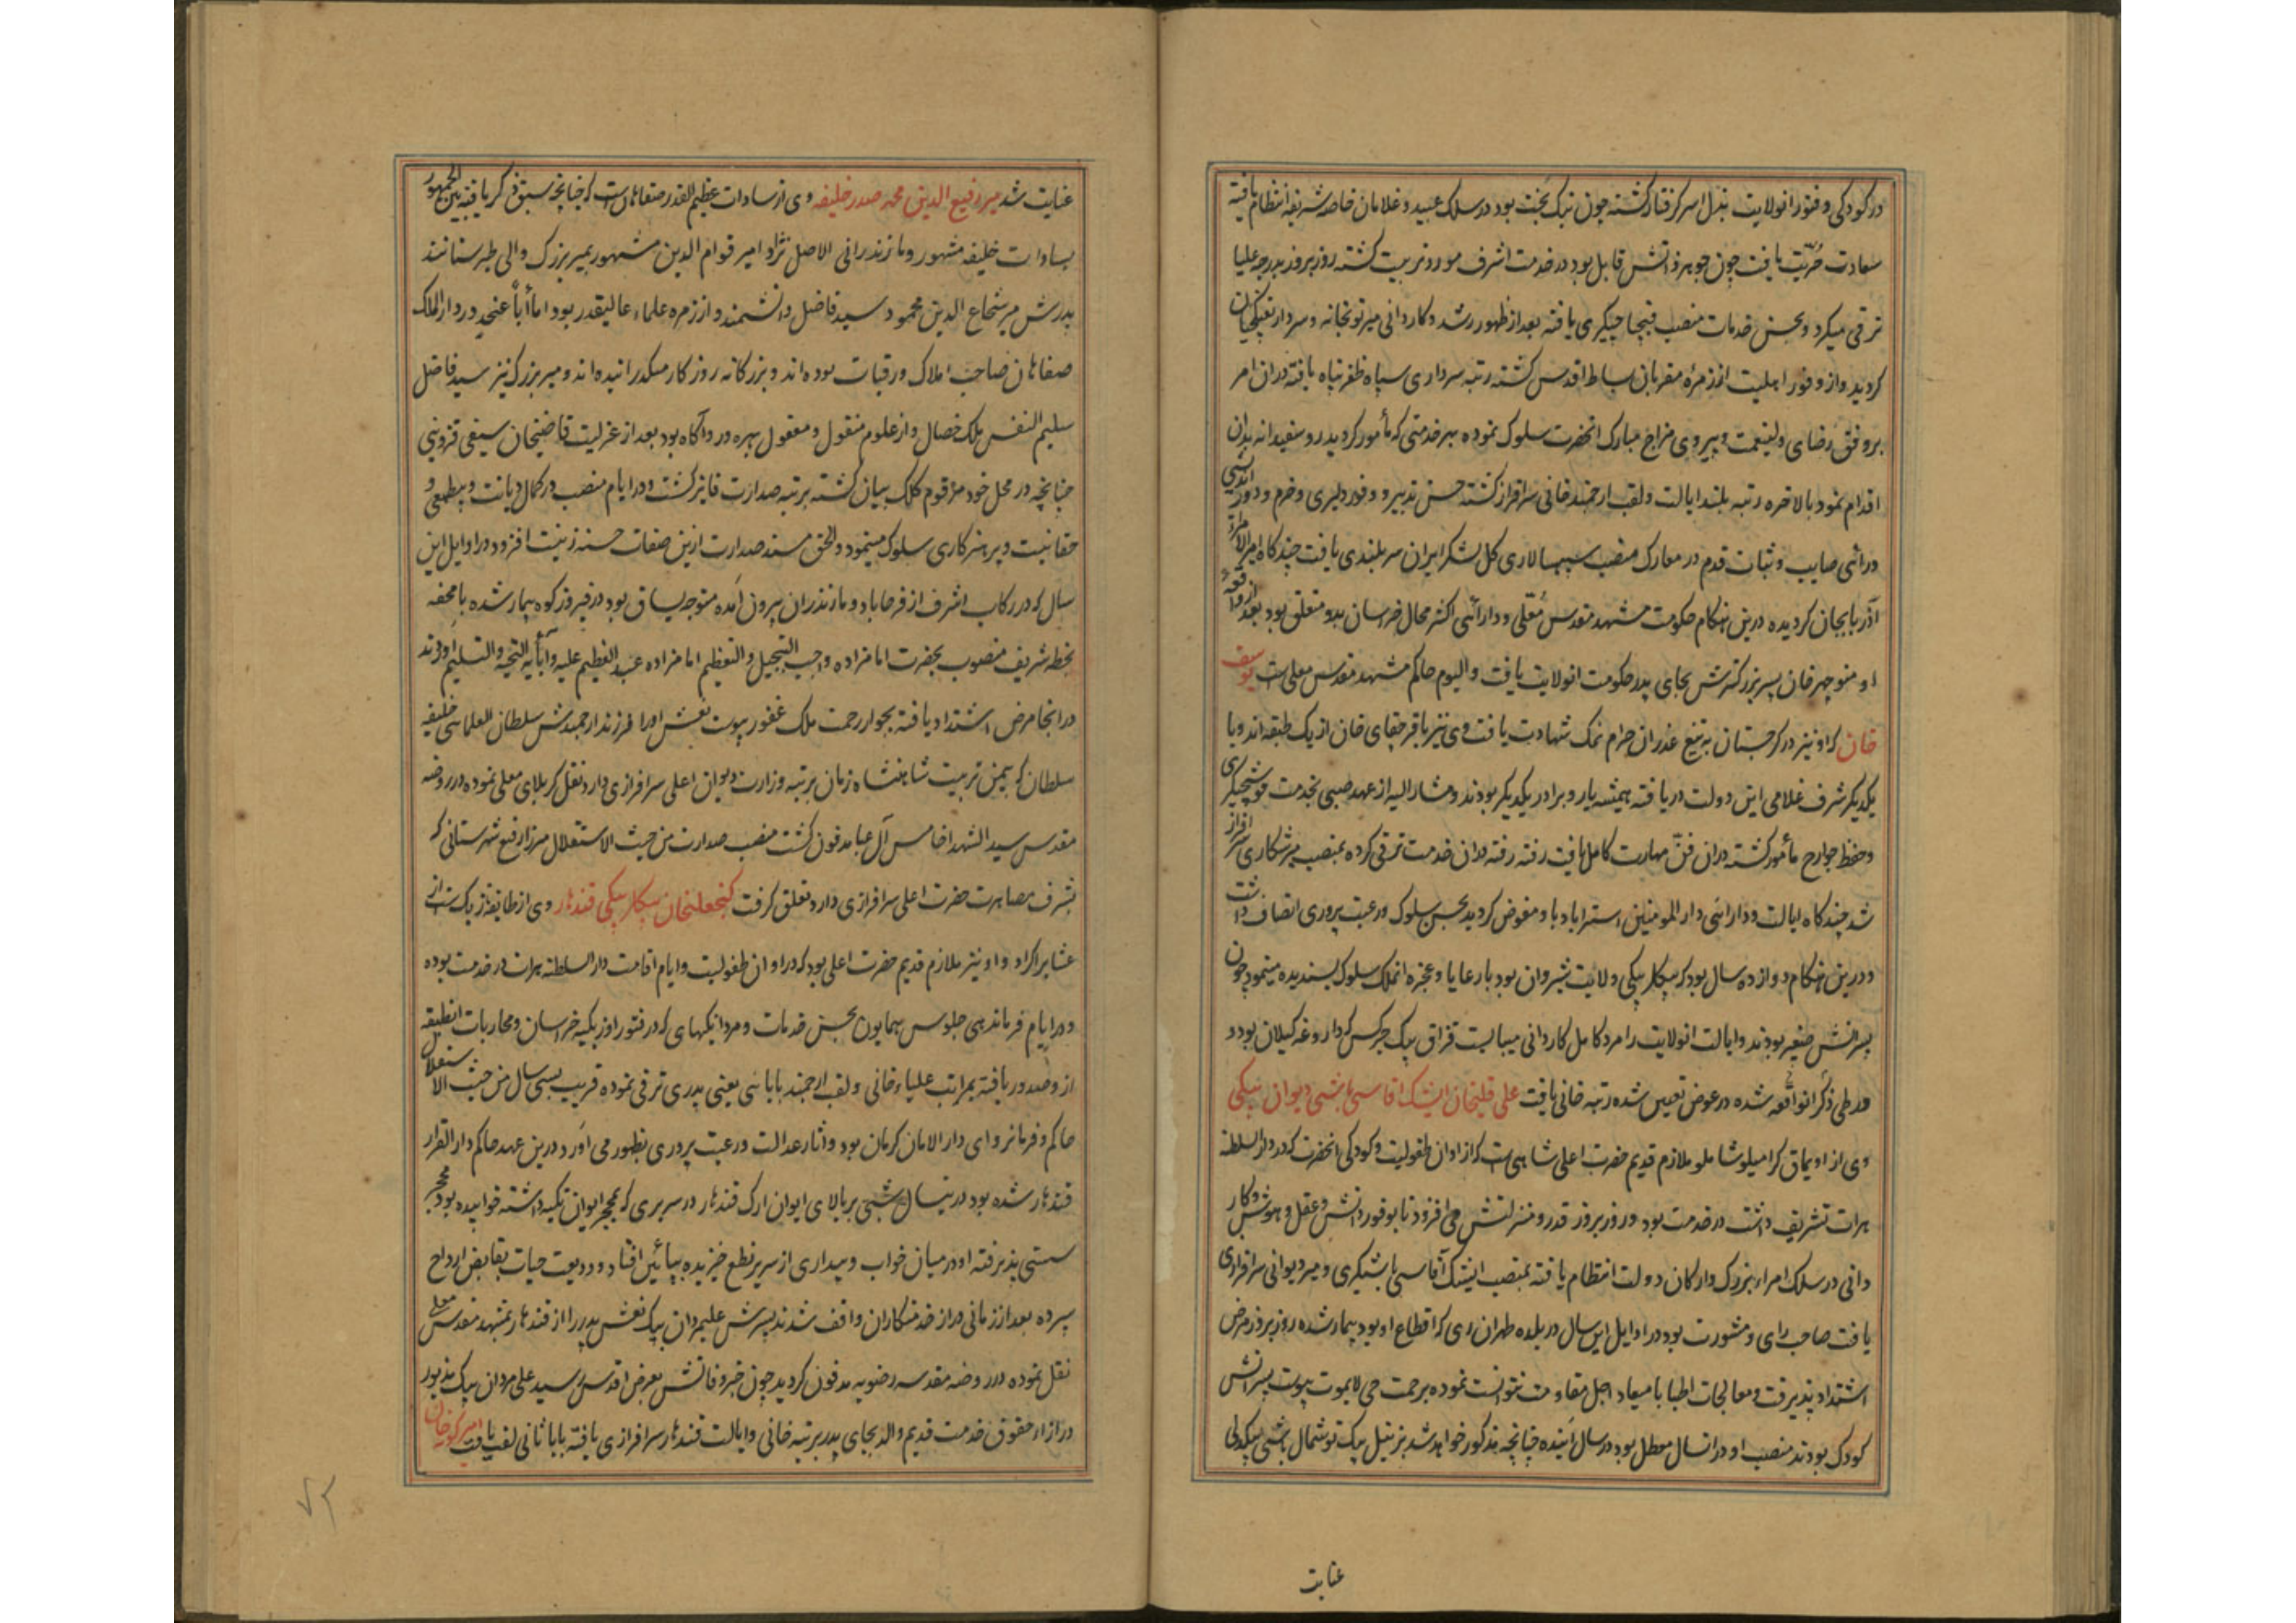 در کودکی و فتور انولایت بذل اسر گرفتار گشته چون نیک بخت بود در سلک عبید و غلامان خاصه شریفه انتظام یافته
سعادت حریت یافت چون جوهر ذاتش قابل بود در خدمت اشرف مورد تربیت گشته روز بروز بدرجه علیا
ترقی میکرد و بحسن خدمات منصب قیچاجیگری یافته بعد از ظهور رشد و کاردانی میر توپخانه و سردار تفنگچیان
گردید و از وفور اهلیت از زمره مقربان بساط اقدس گشته رتبه سرداری سپاه ظفرپناه یافته در ان امر
بر وفق رضای ولینعمت و پیروی مزاج مبارک انحضرت سلوک نموده بهر خدمتی که مأمور گردید رو سفیدانه بدان
اقدام نمود بالاخره رتبه بلند ایالت و لقب ارجمند خانی سرافراز گشته حسن تدبیر و وفور دلیری و حزم و دور اندیشی
و رائی صایب و ثبات قدم در معارک منصب سپهسالاری کل لشکر ایران سربلندی یافت چند گاه امیرالامراء
آذربایجان گردیده درین هنگام حکومت مشهد مقدس معلی و دارائی اکثر محال خراسان بدو متعلق بود بعد از واقعه
او منوچهر خان پسر بزرگترش بجای پدر حکومت انولایت یافت و الیوم حاکم مشهد مقدس معلی است یوسف
خان که او نیز در گرجستان به تیغ غدران حرام نمک شهادت یافت وی نیز با قرچقای خان از یک طبقه اند و با
یکدیگر شرف غلامی این دولت دریافته همیشه یار و برادر یکدیگر بودند و مشار الیه از عهد صبی بخدمت قوشچیگری
و حفظ جوارح مأمور گشته در ان فن مهارت کامل یافت رفته رفته در ان خدمت ترقی کرده بمنصب میرشکاری سرافراز
شد چند گاه ایالت و دارائی دار المومنین استراباد باو مفوض گردید بحسن سلوک و رعیت پروری اتصاف داشت
و درین هنگام دوازده سال بود که بیگلربیگی ولایت شیروان بود با رعایا و عجزه انملک سلوک پسندیده مینمود چون
پسرانش صغیر بودند و ایالت انولایت را مرد کامل کاردانی میبایست قزاق بیک چرکس که داروغه گیلان بود و
در طی ذکر انواقعه شده در عوض تعیین شده رتبه خانی یافت علی قلیخان ایشیک اقاسی باشی دیوان بیگی
وی از اویماق گرامیلو شاملو ملازم قدیم حضرت اعلی شاهی است که از اوان طفولیت و کودکی انحضرت که در دار السلطنة
هرات تشریف داشت در خدمت بود و روز بروز قدر و منزلتش می افزود تا بوفور دانش و عقل و هوش و کار
دانی در سلک امراء بزرگ و ارکان دولت انتظام یافته بمنصب ایشیک آقاسی باشیگری و میر دیوانی سرافرازی
یافت صاحب رای و مشورت بود در اوایل این سال در بلده طهران ری که اقطاع او بود بیمار شده روز بروز مرض
اشتداد پذیرفت و معالجات اطبا با میعاد اجل مقاومت نتوانست نموده برحمت حی لایموت پیوست پسرانش
کودک بودند منصب او در انسال معطل بود در سال آینده چنانچه مذکور خواهد شد بزینل بیک توشمال باشی بیکدلی
عنایت
عنایت شد میر رفیع الدین محمد صدر خلیفه وی از سادات عظیم القدر صفاهان است که چنانچه سبق ذکر یافته بین الجمهور
بسادات خلیفه مشهور و مازندرانی الاصل نژاد امیر قوام الدین مشهور بمیر بزرگ والی طبرستانند
پدرش میر شجاع الدین محمود سید فاضل دانشمند و از زمره علماء عالیقدر بود اما أباً عنجد در دار الملک
صفاهان صاحب املاک و رقبات بوده اند و بزرگانه روزگار میگذرانیده اند و میر بزرگ نیز سید فاضل
سلیم النفس ملک خصال و از علوم منقول و معقول بهره ور و آگاه بود بعد از عزلیت قاضیخان سیفی قزوینی
چنانچه در محل خود مرقوم کلک بیان گشته برتبه صدارت فایز گشت و در ایام منصب در کمال دیانت و بیطمعی و
حقانیت و پرهیزکاری سلوک مینمود و الحق مسند صدارت ازین صفات حسنه زینت افزود در اوایل این
سال که در رکاب اشرف از فرح اباد و مازندران بیرون آمده متوجه یساق بود در فیروز کوه بیمار شده با محفه
بخطه شریف منصوب بحضرت امامزاده واجب التبجیل والتعظیم امامزاده عبد العظیم علیه و آبأیه التحیه والتسلیم آوردند
در انجا مرض اشتداد یافته بجوار رحمت ملک غفور پیوست نعش او را فرزند ارجمندش سلطان العلمائی خلیفه
سلطان که بیمن تربیت شاهنشاه زمان برتبه وزارت دیوان اعلی سرافرازی دارد نقل کربلای معلی نموده در روضه
مقدس سید الشهدا خامس آل عبا مدفون گشت منصب صدارت من حیث الاستقلال میرزا رفیع شهرستانی که
بشرف مصاهرت حضرت اعلی سرافرازی دارد تعلق گرفت گنجعلیخان بیگلربیگی قندهار وی از طایفه زیک است از
عشایر اکراد و او نیز ملازم قدیم حضرت اعلی بود که در اوان طفولیت و ایام اقامت دار السلطنه هرات در خدمت بوده
و در ایام فرماندهی جلوس همایون بحسن خدمات و مردانگیهای که در فتور اوزبکیه خراسان و محاربات انطبقه
از و صدور یافته بمراتب علیاء خانی و لقب ارجمند بابائی یعنی پدری ترقی نموده قریب بسی سال من حیث الاستقلال
حاکم و فرمانروای دار الامان کرمان بود و آثار عدالت و رعیت پروری بظهور می آورد و درین عهد حاکم دار القرار
قندهار شده بود درینسال شبی بر بالای ایوان ارک قندهار در سریری که بمحجر ایوان تکیه داشته خوابیده بود محجر
سستی پذیرفته او در میان خواب و بیداری از سریر نطع خزیده بپائین افتاد و ودیعت حیات بقابض ارواح
سپرده بعد از زمانی دراز خدمتکاران واقف شدند پسرش علیمردان بیک نعش پدر را از قندهار بمشهد مقدس معلی
نقل نموده در روضه مقدسه رضویه مدفون گردید چون خبر وفاتش بعرض اقدس رسید علی مردان بیک مذبور
در ازاء حقوق خدمت قدیم والد بجای پدر برتبه خانی و ایالت قندهار سرافرازی یافته بابا ثانی لقب یافت امیر گونه خان
۷۲